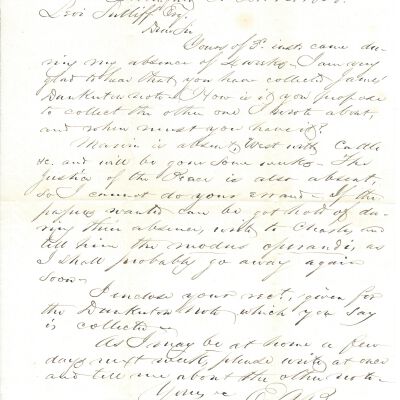 Levi Sutliff Esq.
Dear Sir
Yours of 3d inst. came du-
ring my absence of 2 weeks. I am very
glad to hear that you have collected James
Dunkerton note. How is it you propose
to collect the other one I wrote about,
and when must you have it?
Marvin is absent West with Cattle
&c. and will be gone some weeks. The
Justice of the Peace is also absent,
so I cannot do your errand. If the
papers wanted can be got hold of du-
ring their absence, write to Charles and
tell him the modus operandi, as
I shall probably go away again
soon.
I enclose your rect, given for
the Dunkerton note which you say
is collected.
As I may be at home a few
days next week, please write at once
and tell me about the other note.
Yours &c